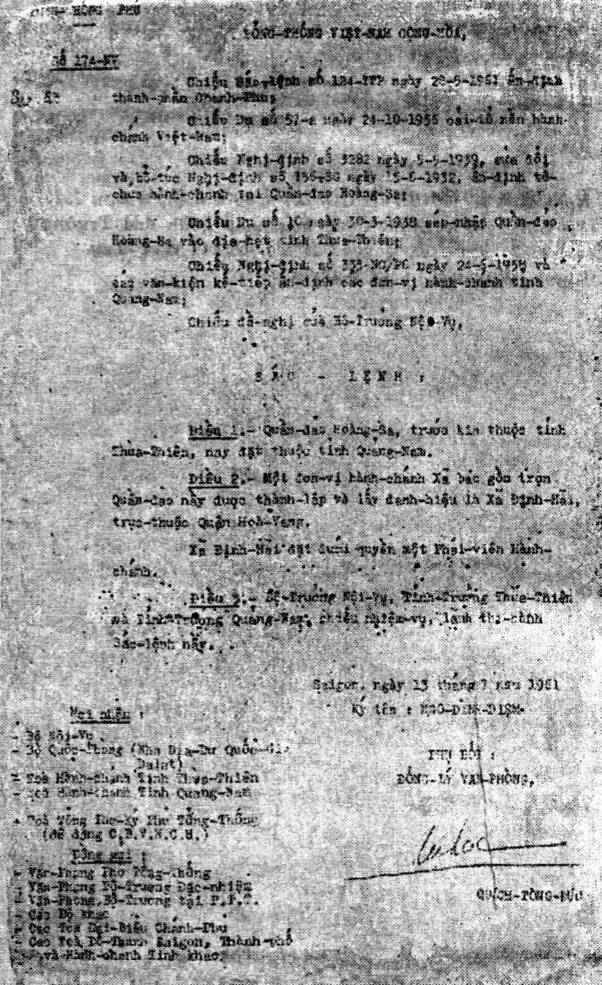 TỔNG-THỐNG VIỆT-NAM CỘNG-HÒA,
Số 174-NV
Chiếu Sắc-lệnh số 124-TTP ngày 28-5-1961 ấn-định
thành-phần Chánh-Phủ;
Chiếu Dụ số 57-a ngày 24-10-1956 cải-tổ nền hành-
chánh Việt-Nam;
Chiếu Nghị-định số 3282 ngày 5-5-1939, sửa đổi
và bổ-túc Nghị-định số 156-SC ngày 15-6-1932, ấn-định tổ-
chức hành-chánh tại Quần-đảo Hoàng-Sa;
Chiếu Dụ số 10 ngày 30-3-1938 sáp-nhập Quần-đảo
Hoàng-Sa vào địa-hạt tỉnh Thừa-Thiên;
Chiếu Nghị-định số 335-NC/PC ngày 24-6-1958 và
các văn-kiện kế-tiếp ấn-định các đơn-vị hành-chánh tỉnh
Quảng-Nam;
Chiếu đề-nghị của Bộ-Trưởng Nội-Vụ,
SẮC - LỆNH :
Điều 1.- Quần-đảo Hoàng-Sa, trước kia thuộc tỉnh
Thừa-Thiên, nay đặt thuộc tỉnh Quảng-Nam.
Điều 2.- Một đơn-vị hành-chánh Xã bao gồm trọn
Quần-đảo này được thành-lập và lấy danh-hiệu là Xã Định-Hải,
trực-thuộc Quận Hoà-Vang.
Xã Định-Hải đặt dưới quyền một Phái-viên Hành-
chánh.
Điều 3.- Bộ-Trưởng Nội-Vụ, Tỉnh-Trưởng Thừa-Thiên
và Tỉnh-Trưởng Quảng-Nam, chiếu nhiệm-vụ, lãnh thi-hành
Sắc-lệnh này.
Saigon, ngày 13 tháng 7 năm 1961
Ký tên : NGO-DINH-DIEM
Nơi nhận :
- Bộ Nội-Vụ
- Bộ Quốc-Phòng (Nha Địa-Dư Quốc-Gia
Dalat)
- Toà Hành-chánh Tỉnh Thừa-Thiên
- Toà Hành-chánh Tỉnh Quảng-Nam
- Toà Tổng Thư-Ký Phủ Tổng-Thống
(để đăng C.B.V.N.C.H.)
Đồng gửi :
- Văn-Phòng Phó Tổng-Thống
- Văn-Phòng Bộ-Trưởng Đặc-nhiệm
- Văn-Phòng Bộ-Trưởng tại P.T.T.
- Các Bộ khác
- Các Toà Đại-Biểu Chánh-Phủ
- Các Toà Đô-Thành Saigon, Thành-phố
và Hành-chánh Tỉnh khác.
PHÓ BỔN :
ĐỔNG-LÝ VĂN-PHÒNG,
QUÁCH-TÒNG-ĐỨC